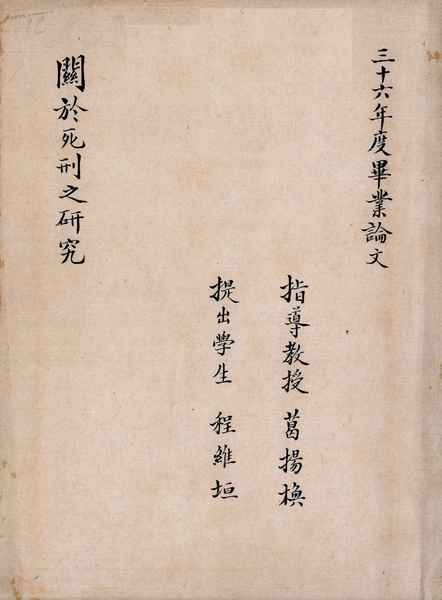 三十六年度畢業論文
指導教授 葛揚煥
提出學生 程維垣
關於死刑之研究